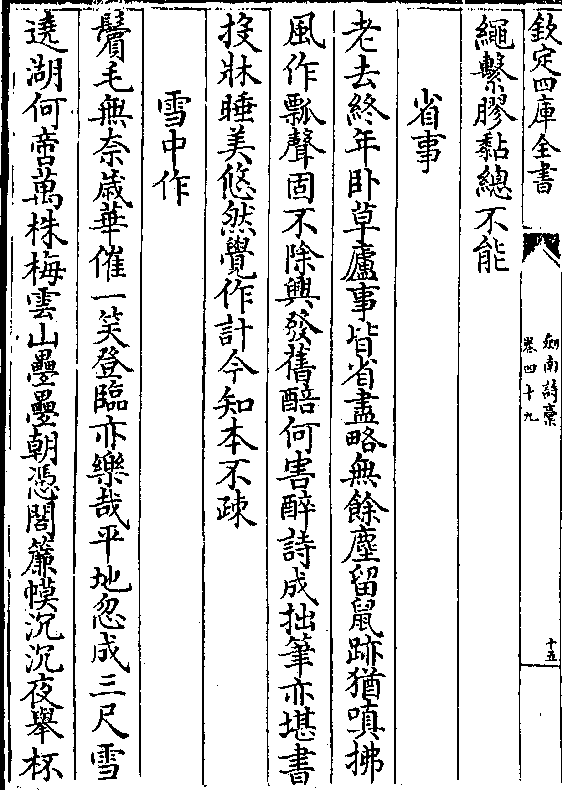 欽定四庫全書
劒南詩藁
卷四十九
十五
繩繫膠黏總不能
省事
老去終年卧草廬事皆省盡略無餘塵留鼠跡猶嗔拂
風作瓢聲固不除興發舊醅何害醉詩成拙筆亦堪書
投牀睡美悠然覺作計今知本不疎
雪中作
鬢毛無奈歲華催一笑登臨亦樂哉平地忽成三尺雪
遶湖何啻萬株梅雲山疊疊朝憑閣簾幙沉沉夜舉杯